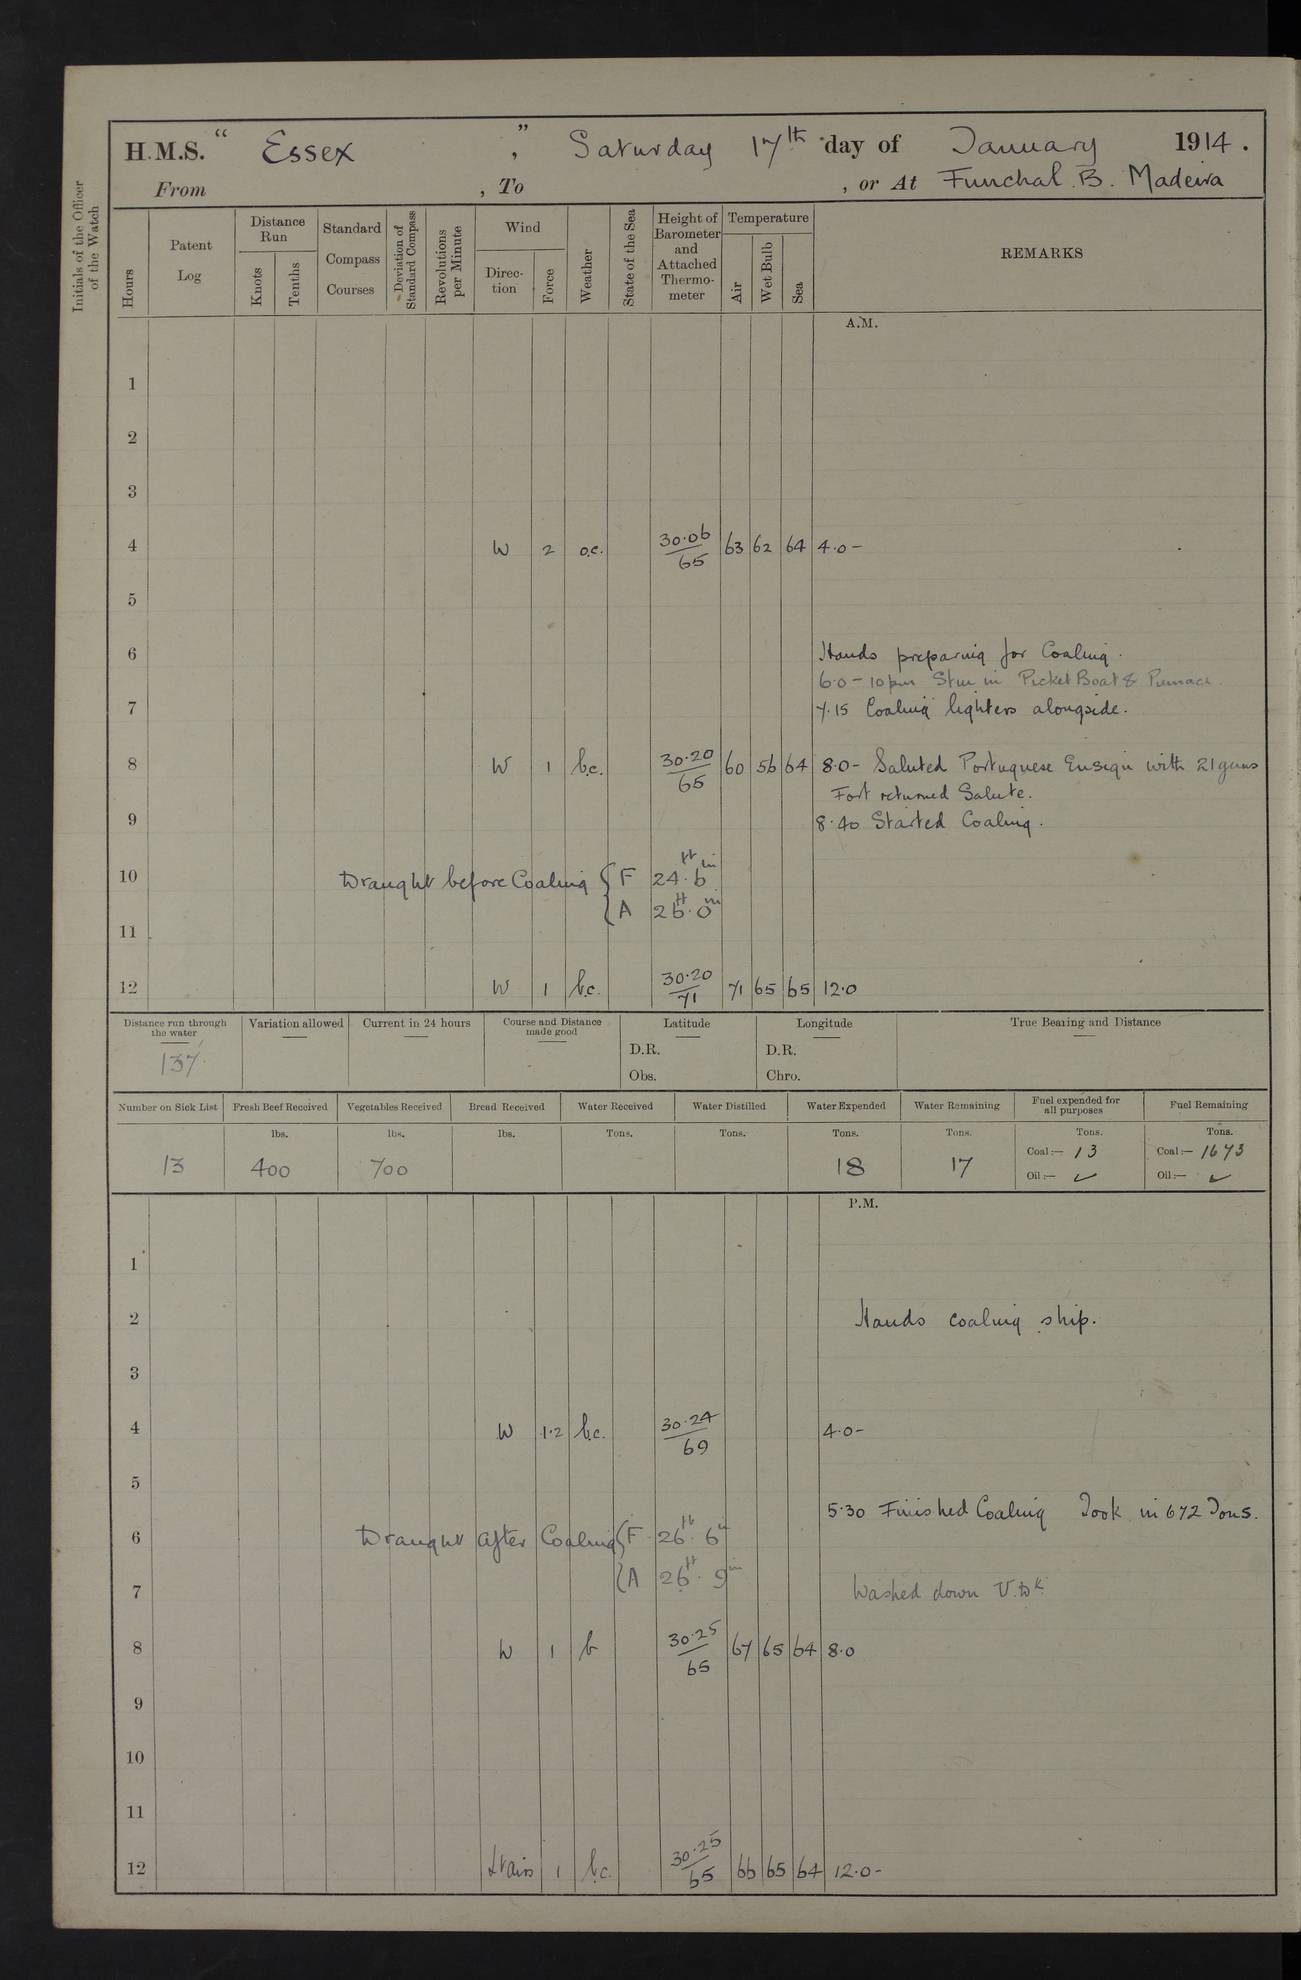 H.M.S. " Essex " , Saturday 17th day of January 1914 .
From , To , or At Funchal B. Madeira
Initials of the Officer of the Watch
Hours
Patent Log
Distance Run
Knots
Tenths
Standard Compass Courses
Deviation of Standard Compass
Revolutions per Minute
Wind
Direction
Force
Weather
State of the Sea
Height of Barometer and Attached Thermometer
Temperature
Air
Wet Bulb
Sea
REMARKS
A.M.
1
2
3
4 W 2 o.c. 30.06/65 63 62 64 4.0 -
5
6 Hands preparing for Coaling.
6.0 - 10 pm in Picket Boat & Pinnace.
7 7.15 Coaling lighters alongside.
8 W 1 b.c. 30.20/65 60 56 64 8.0 - Saluted Portuguese Ensign with 21 guns
Fort returned Salute.
9 8.40 Started Coaling.
10 Draught before Coaling { F 24 ft. 6 in
{ A 26 ft. 0 in
11
12 W 1 b.c. 30.20/71 71 65 65 12.0
Distance run through the water Variation allowed Current in 24 hours Course and Distance made good Latitude Longitude True Bearing and Distance
137
D.R. D.R.
Obs. Chro.
Number on Sick List Fresh Beef Received Vegetables Received Bread Received Water Received Water Distilled Water Expended Water Remaining Fuel expended for all purposes Fuel Remaining
lbs. lbs. lbs. Tons. Tons. Tons. Tons. Tons. Tons.
13 400 700 18 17 Coal :— 13 Coal :— 1673
Oil :— ✓ Oil :— ✓
P.M.
1
2 Hands coaling ship.
3
4 W 1.2 b.c. 30.24/69 4.0 -
5
5.30 Finished Coaling Took in 672 Tons.
6 Draught after Coaling { F 26 ft. 6 in
{ A 26 ft. 9 in
7 Washed down U. Dk.
8 W 1 b 30.25/65 67 65 64 8.0
9
10
11
12 Lt airs 1 b.c. 30.25/65 66 65 64 12.0 -